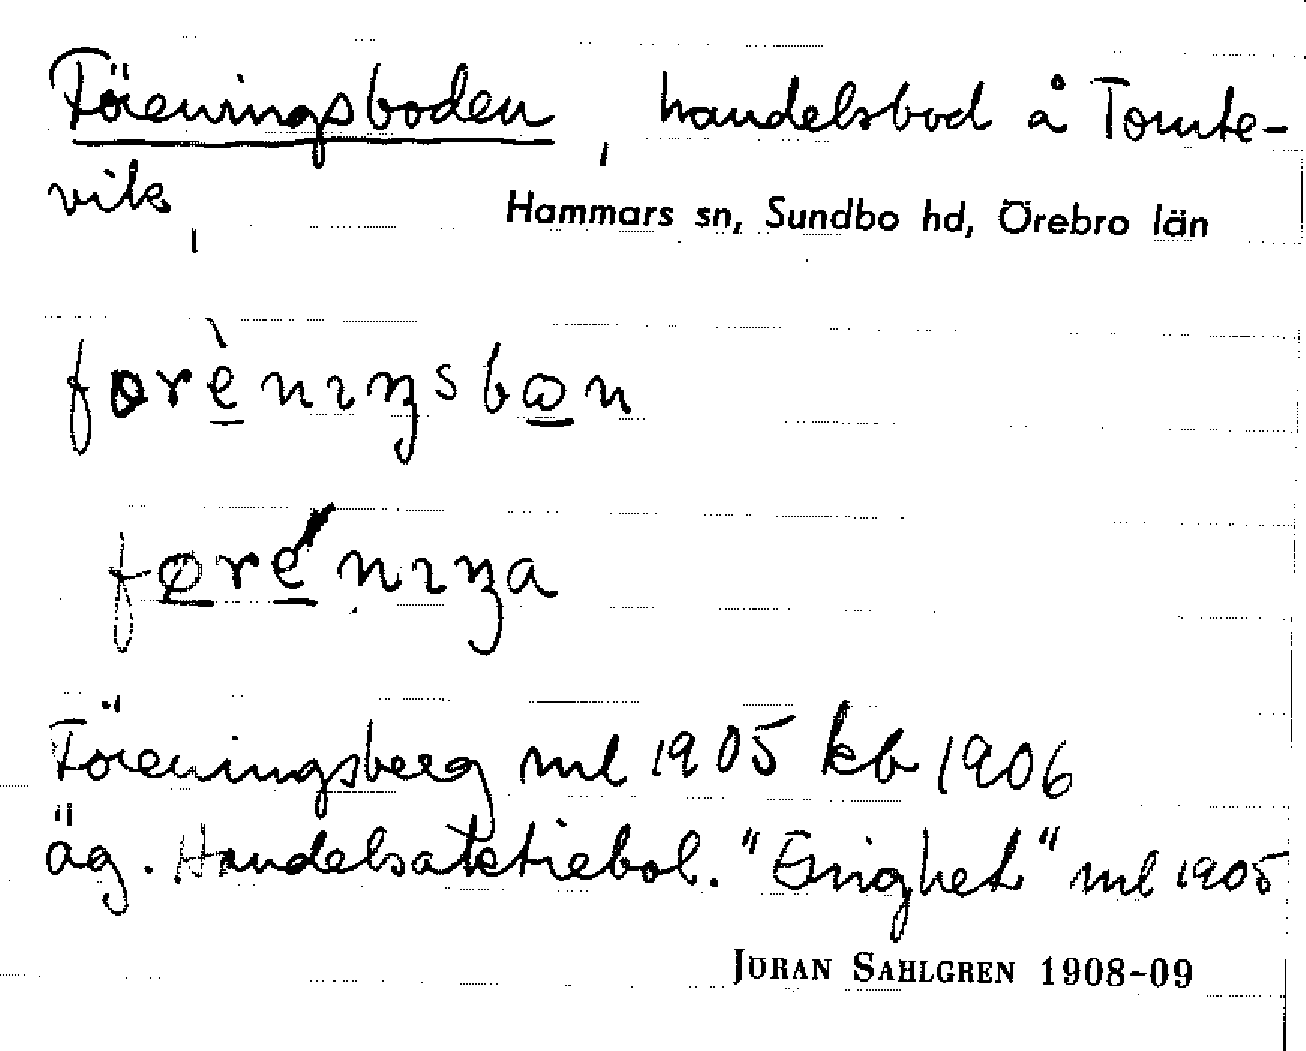 Föreningsboden, handelsbod å Tomte-
vik,
Hammars sn, Sundbo hd, Örebro län
førènıŋsbωn
førénıŋa
Föreningsberg ml 1905 kb 1906
äg. Handelsaktiebol. "Enighet" ml 1905
JÖRAN SAHLGREN 1908-09